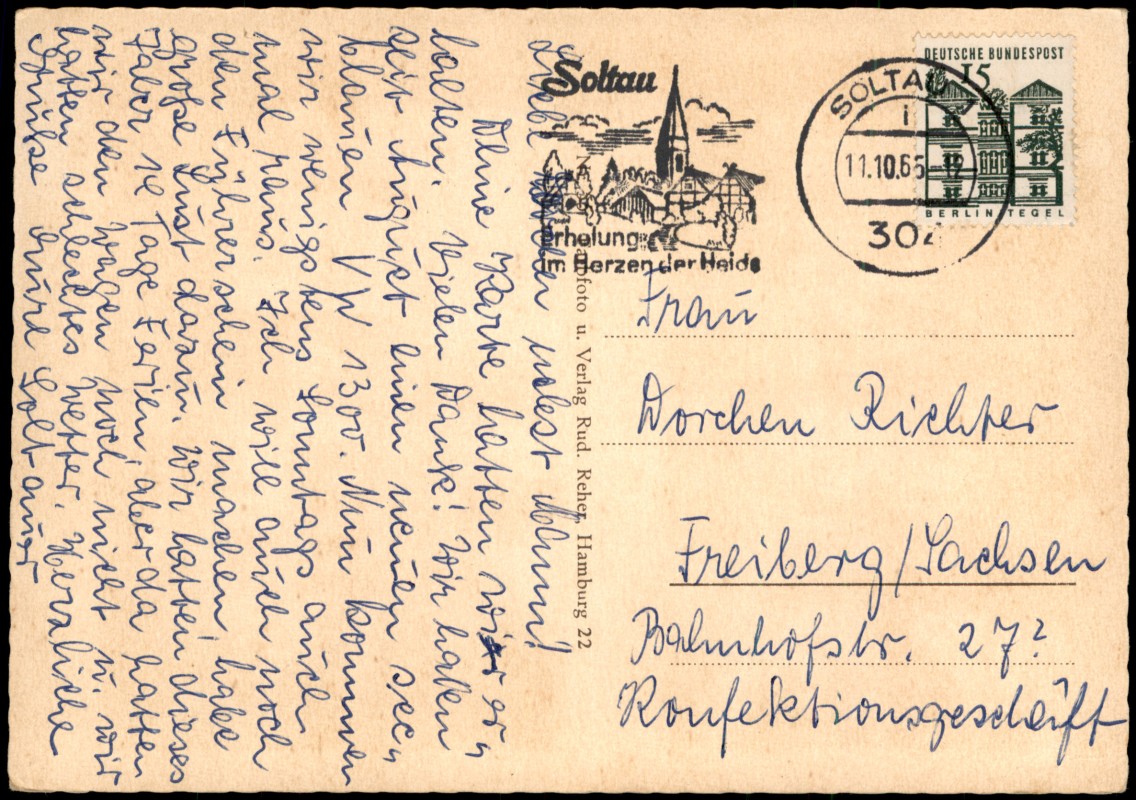 Soltau
Erholung
im Herzen der Heide
SOLTAU 1
i
11.10.65-12
304
DEUTSCHE BUNDESPOST
15
BERLIN TEGEL
nebst Mum!
Deine Karte hatten wir er„
halten. Vielen Dank! Wir haben
seit August einen neuen see„
blauen VW 1300. Nun kommen
wir wenigstens Sonntags auch
mal raus. Ich will auch noch
den Führerschein machen, habe
große Lust daran. Wir hatten dieses
Jahr 14 Tage Ferien, aber da hatten
wir den Wagen noch nicht u. wir
hatten schlechtes Wetter. Herzliche
Grüße Eure Soltauer
foto u. Verlag Rud. Reher, Hamburg 22
Frau
Dorchen Richter
Freiberg/Sachsen
Bahnhofstr. 27?
Konfektionsgeschäft